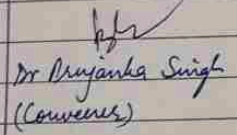 Dr Priyanka Singh
(Convener)